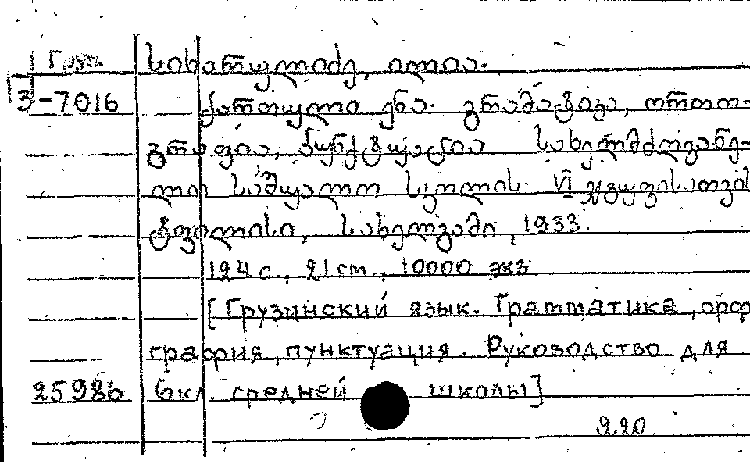 Груз.
სიხარულიძე, ილია.
3-7016 ქართული ენა. გრამატიკა, ორთო-
გრაფია, პუნქტუაცია სახელმძღვანე-
ლო საშუალო სკოლის VI ჯგუფისათვის
ტფილისი, სახელგამი, 1933.
124 с., 21 cm, 10000 экз
[Грузинский язык. Грамматика, орфо
графия, пунктуация. Руководство для
25986 6 кл. средней школы]
220